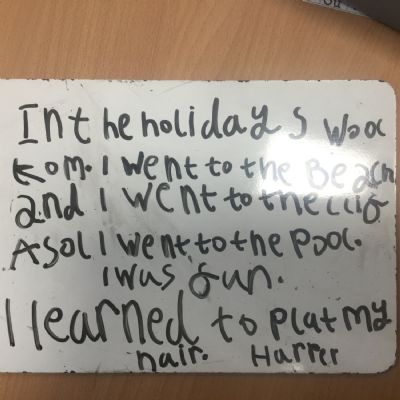 In the holidays
tom. I went to the Beach
and I went to the
Asol I went to the pool.
I was fun.
I learned to plat my
hair. Harper